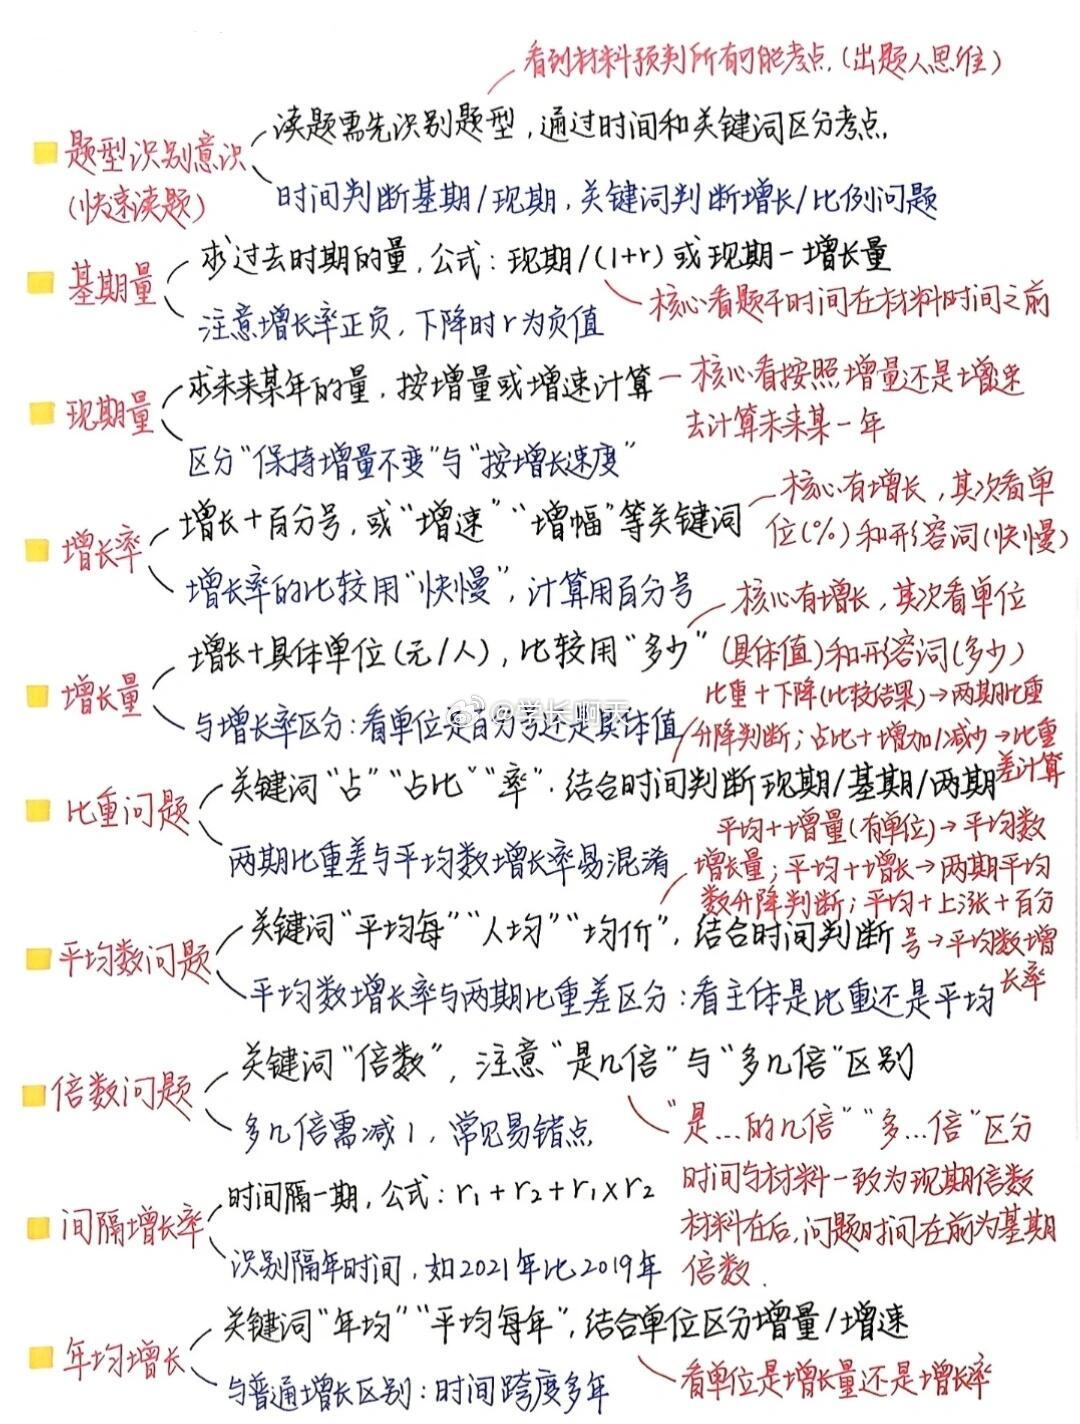 看到材料预判所有可能考点.(出题人思维)
读题需先识别题型,通过时间和关键词区分考点.
题型识别意识
(快速读题)
时间判断基期/现期,关键词判断增长/比例问题
求过去时期的量,公式:现期/(1+r)或现期-增长量
基期量
核心看题干时间在材料时间之前
注意增长率正负,下降时r为负值
求未来某年的量,按增量或增速计算
核心看按照增量还是增速
去计算未来某一年
现期量
区分"保持增量不变"与"按增长速度"
核心有增长,其次看单
位(%)和形容词(快慢)
增长+百分号,或"增速""增幅"等关键词
增长率
增长率的比较用"快慢",计算用百分号
核心有增长,其次看单位
(具体值)和形容词(多少)
增长+具体单位(元/人),比较用"多少"
增长量
与增长率区分:看单位是百分号还是具体值
@学长啊天
比重+下降(比较结果)→两期比重
升降判断;占比+增加/减少→比重
差计算
关键词"占""占比""率".结合时间判断现期/基期/两期
比重问题
两期比重差与平均数增长率易混淆
平均+增量(有单位)→平均数
增长量;平均+增长→两期平均
数升降判断;平均+上涨+百分
号→平均数增
长率
关键词"平均每""人均""均价",结合时间判断
平均数问题
平均数增长率与两期比重差区分:看主体是比重还是平均
关键词"倍数",注意"是几倍"与"多几倍"区别
倍数问题
多几倍需减1,常见易错点
"是...的几倍""多...倍"区分
时间与材料一致为现期倍数
材料在后,问题时间在前为基期
倍数.
时间隔一期,公式:r₁+r₂+r₁×r₂
间隔增长率
识别隔年时间,如2021年比2019年
关键词"年均""平均每年",结合单位区分增量/增速
年均增长
看单位是增长量还是增长率
与普通增长区别:时间跨度多年